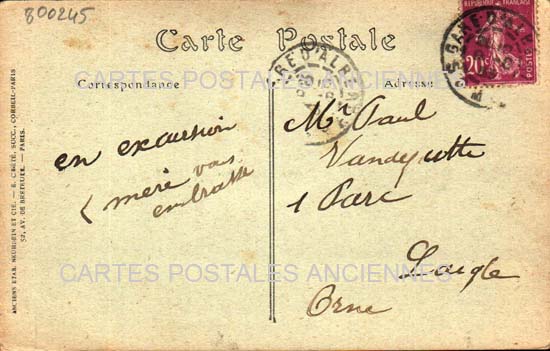 800245
Carte Postale
Correspondance
Adresse
RÉPUBLIQUE FRANÇAISE
20c
GARE D'A
GARE D'A
en excursion
mère vous
embrasse
Mr Paul
1 Parc
Laigle
Orne
CARTES POSTALES ANCIENNES
CARTES POSTALES ANCIENNES
ANCIENS ETAB. NEURDEIN ET CIE. — E. CRÉTÉ, SUCC., CORBEIL-PARIS
52, AV. DE BRETEUIL. — PARIS.